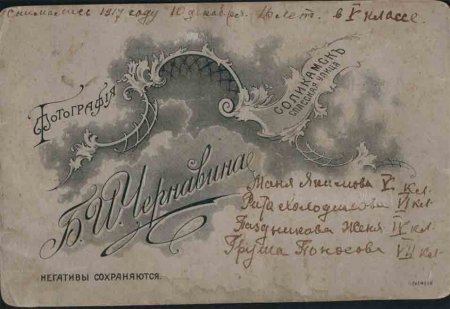 Снимались 1917 году 10 декабря. 16 лет. в V классе.
Фотографія
СОЛИКАМСКЪ
СПАССКАЯ УЛИЦА
Б. И. Чернавина
Маня Якимова V кл.
Рита Холодилова VI кл.
Женя IV кл.
Груша Поносова VII кл.
НЕГАТИВЫ СОХРАНЯЮТСЯ.